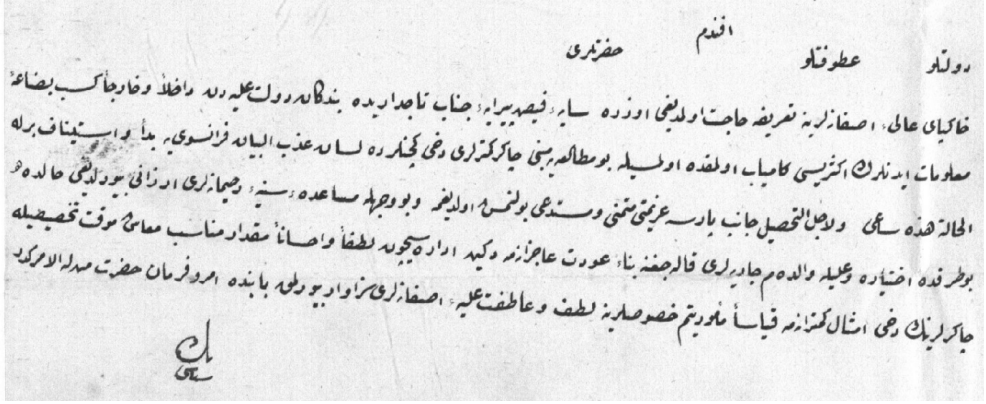 دولتلو عطوفتلو افندم حضرتلرى
خاكپاى عالىء اصفانه‌لرينه تعريفه حاجت اولمديغى اوزره سايهء فيض پيرايهء جناب تاجداريده بندكان دولت عليه‌دن داخلاً وخارجاً كسب بضاعهٔ
معلومات ايدنلرك اكثريسى كامياب اولمقده اولمسيله بو مطالعه‌يه مبنى چاكر كمترلرى دخى لسان عذب البيان فرانسوى‌يه بدأ و استيناف برله
الحالة هذه ساعى ولاجل التحصيل جانب پارسه عزيمتى متمنى ومستدعى بولنمش اولديغمه وبو وجهله مساعدهء سنيهء رحيمانه‌لرى ارزانى بيورلديغى حالده
بو طرفده اختياره وعليله والده‌م جاريه‌لرى قاله‌جغنه بناءً عودت عاجزانه‌مه دكين اداره‌سيچون لطفاً واحساناً مقدار مناسب معاش موقت تخصيصيله
چاكرلرينك دخى امثال كمترانه‌مه قياساً خصوصلرينه لطف وعاطفت عليهء اصفانه‌لرى سزاوار بيورلمق بابنده امر وفرمان حضرت من له الامركدر
بنده